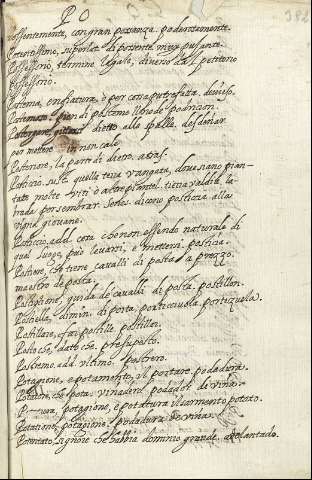 PO 382
Possentemente, con gran possanza. poderosamente.
Potentissimo, superlat. di potente. muy pujante.
Possessorio, termine legale, diverso dal petitorio
possessorio.
Postema, enfiatura, è per cosa putrefatta. divieso.
Postemoso, pien di posteme. lleno de podrizon.
Postergare, gittarsi dietro alle spalle. desdeñar.
per mettere in non cale
Posteriore, la parte di dietro. atras.
Posticcio, sust. quella terra vangata, dove siano pian-
tate molte viti o altre piante. tierra valdia la-
brada per sembrar. Senes. dicono posticcia alla
vigna giovane.
Posticcio, add. cosa che non essendo naturale di
qual luogo, può levarsi, e mettersi. postiça.
Postiere, che tiene cavalli di posta a prezzo.
maestro de posta.
Postiglione, guida de' cavalli di posta. postillon.
Postierla, dimin. di porta, porticciuola. portezuela.
Postillare, far postille. postillar.
Posto che, dato che. presupuesto.
Postremo, add. ultimo. postrero.
Potagione, e potamento, il potare. podadura.
Potatore, che pota. vinadero podador de viñas.
potagione, e potatura il sarmento potato.
Potatione, potagione. podadura de viñas.
Potentato, signore che habbia dominio grande. adelantado.